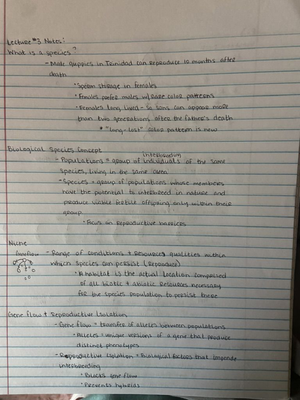 Lecture #3 Notes:
What is a species?
- Male guppies in Trinidad can reproduce 10 months after
death
• Sperm storage in females
• Females prefer males w/ rare color patterns
• Females long lived - So sons can appear more
than two generations after the father's death
* "long-lost" color pattern is new
Biological Species Concept
- Populations = group of interbreeding individuals of the same
species, living in the same area
- Species = group of populations whose members
have the potential to interbreed in nature and
produce viable fertile offspring only within their
group
• Focus on reproductive barriers
Niche
- Range of conditions + resource qualities within
which species can persist (reproduce)
• Habitat is the actual location composed
of all biotic + abiotic resources necessary
for the species population to persist there
Gene flow + Reproductive Isolation
- Gene flow = transfer of alleles between populations
• Alleles: unique versions of a gene that produce
distinct phenotypes
- Reproductive Isolation = Biological factors that impede
interbreeding
• Blocks gene flow
• Prevents hybrids